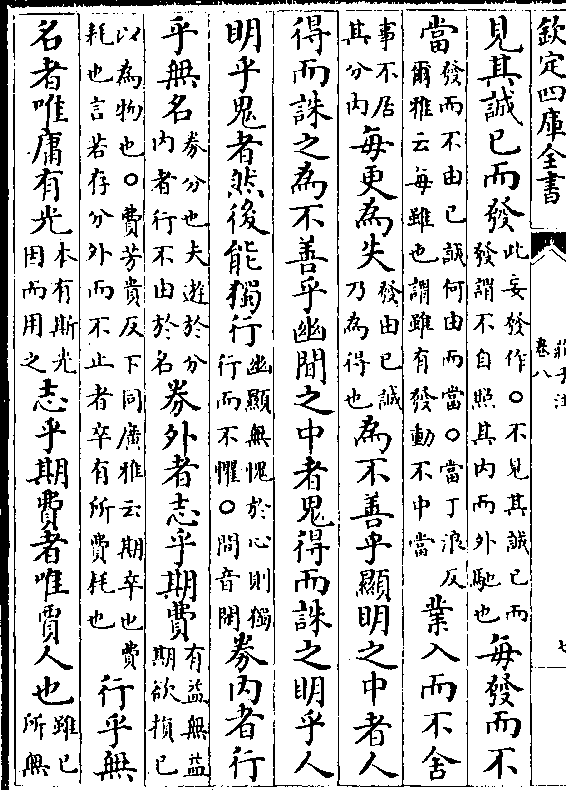 欽定四庫全書
莊子注
卷八
七
見其誠已而發此妄發作○不見其誠已而發謂不自照其内而外馳也每發而不
當發而不由已誠何由而當○當丁浪反爾雅云每雖也謂雖有發動不中當業入而不舍
事不居其分内每更為失發由已誠乃為得也為不善乎顯明之中者人
得而誅之為不善乎幽間之中者鬼得而誅之明乎人
明乎鬼者然後能獨行幽顯無愧於心則獨行而不懼○間音閑劵内者行
乎無名劵分也夫遊於分内者行不由於名劵外者志乎期費有益無益期欲損已
以為物也○費芳貴反下同廣雅云期卒也費耗也言若存分外而不止者卒有所費耗也行乎無
名者唯庸有光本有斯光因而用之志乎期費者唯賈人也雖已所無